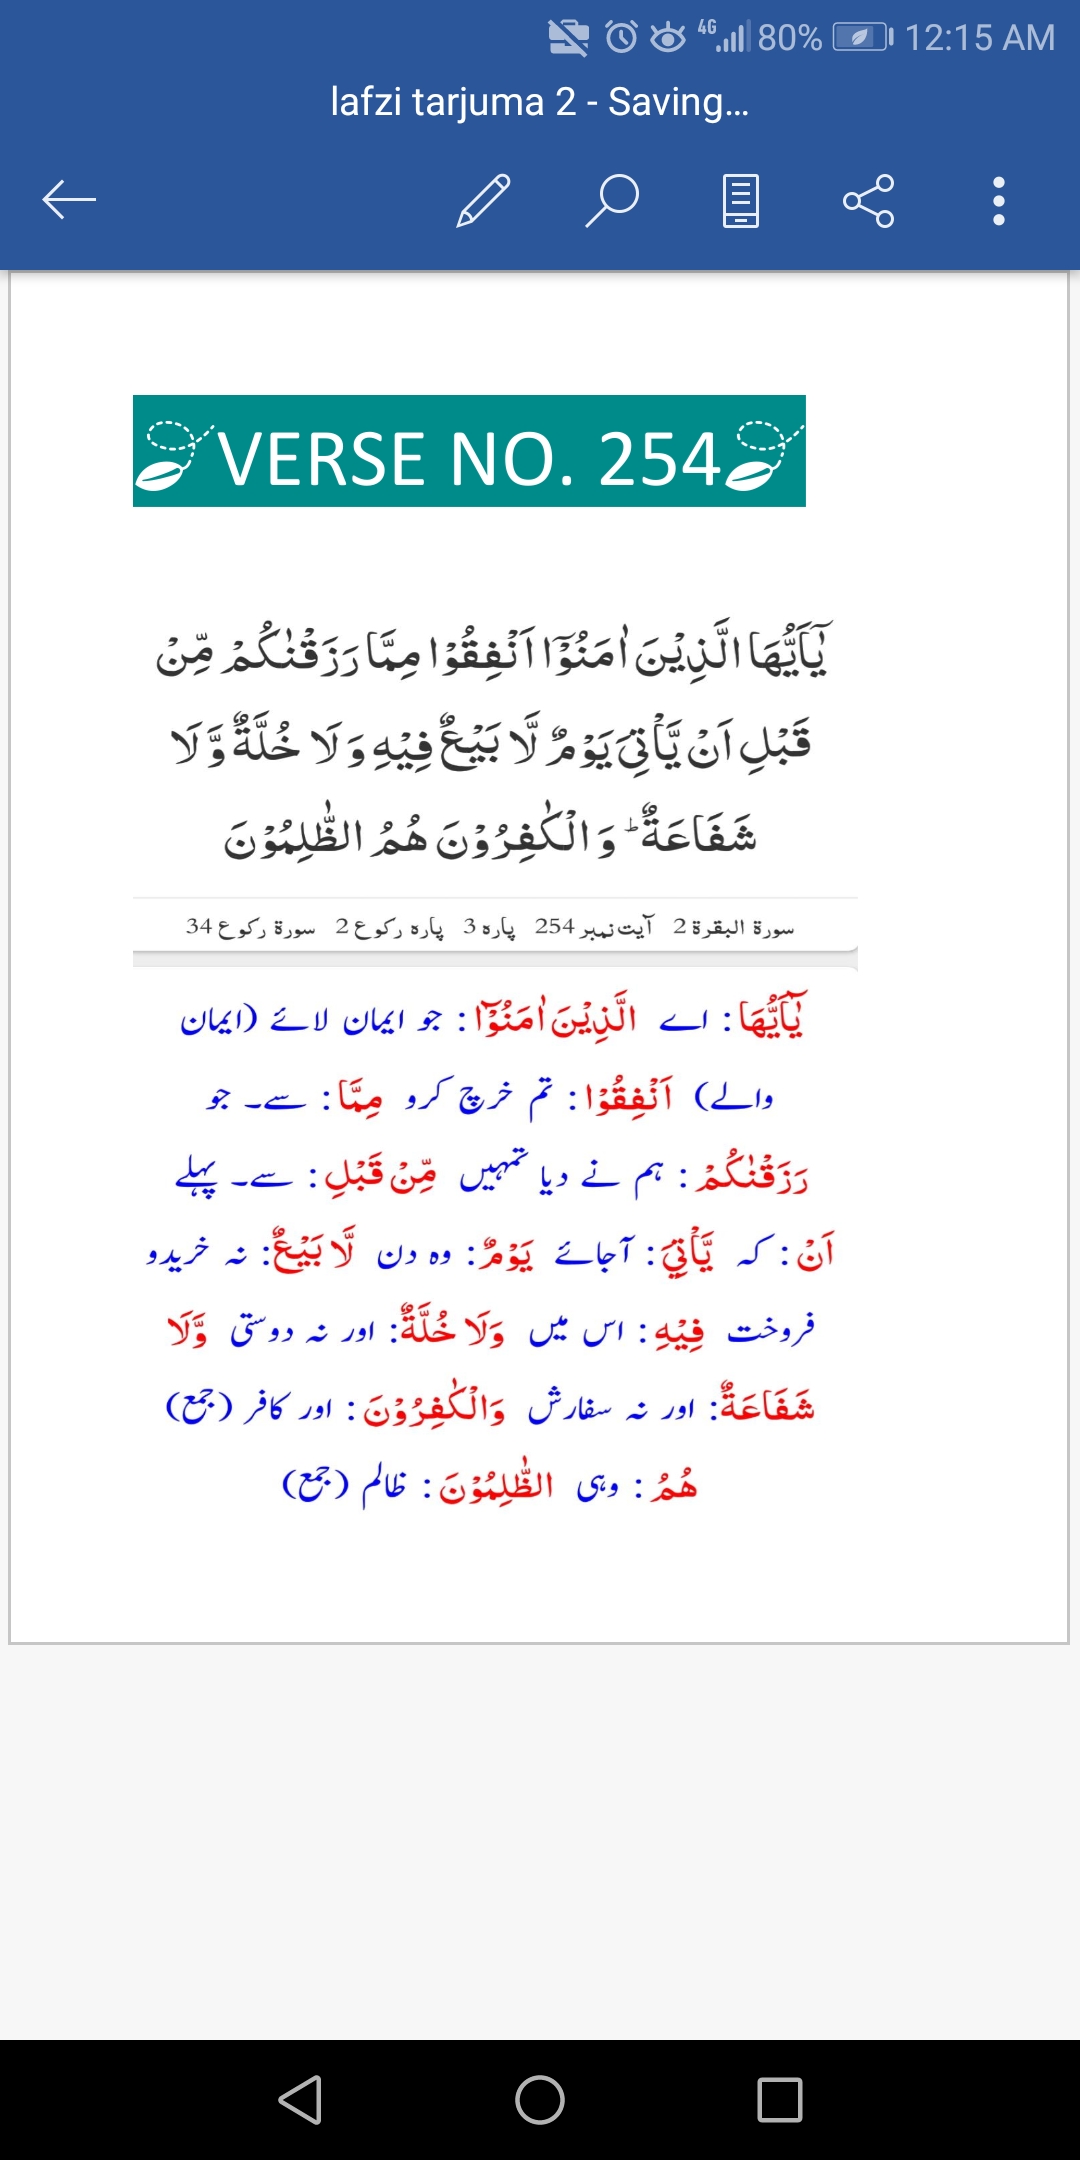 4G 80% 12:15 AM
lafzi tarjuma 2 - Saving...
VERSE NO. 254
یٰۤاَیُّهَا الَّذِیْنَ اٰمَنُوْۤا اَنْفِقُوْا مِمَّا رَزَقْنٰكُمْ مِّنْ
قَبْلِ اَنْ یَّاْتِیَ یَوْمٌ لَّا بَیْعٌ فِیْهِ وَ لَا خُلَّةٌ وَّ لَا
شَفَاعَةٌ ؕ وَ الْكٰفِرُوْنَ هُمُ الظّٰلِمُوْنَ
سورة البقرة 2 آیت نمبر 254 پارہ 3 پارہ رکوع 2 سورة رکوع 34
یٰۤاَیُّهَا : اے الَّذِیْنَ اٰمَنُوْۤا : جو ایمان لائے (ایمان
والے) اَنْفِقُوْا : تم خرچ کرو مِمَّا : سے۔ جو
رَزَقْنٰكُمْ : ہم نے دیا تمہیں مِّنْ قَبْلِ : سے۔ پہلے
اَنْ : کہ یَّاْتِیَ : آجائے یَوْمٌ : وہ دن لَّا بَیْعٌ : نہ خریدو
فروخت فِیْهِ : اس میں وَلَا خُلَّةٌ : اور نہ دوستی وَّلَا
شَفَاعَةٌ : اور نہ سفارش وَالْكٰفِرُوْنَ : اور کافر (جمع)
هُمُ : وہی الظّٰلِمُوْنَ : ظالم (جمع)